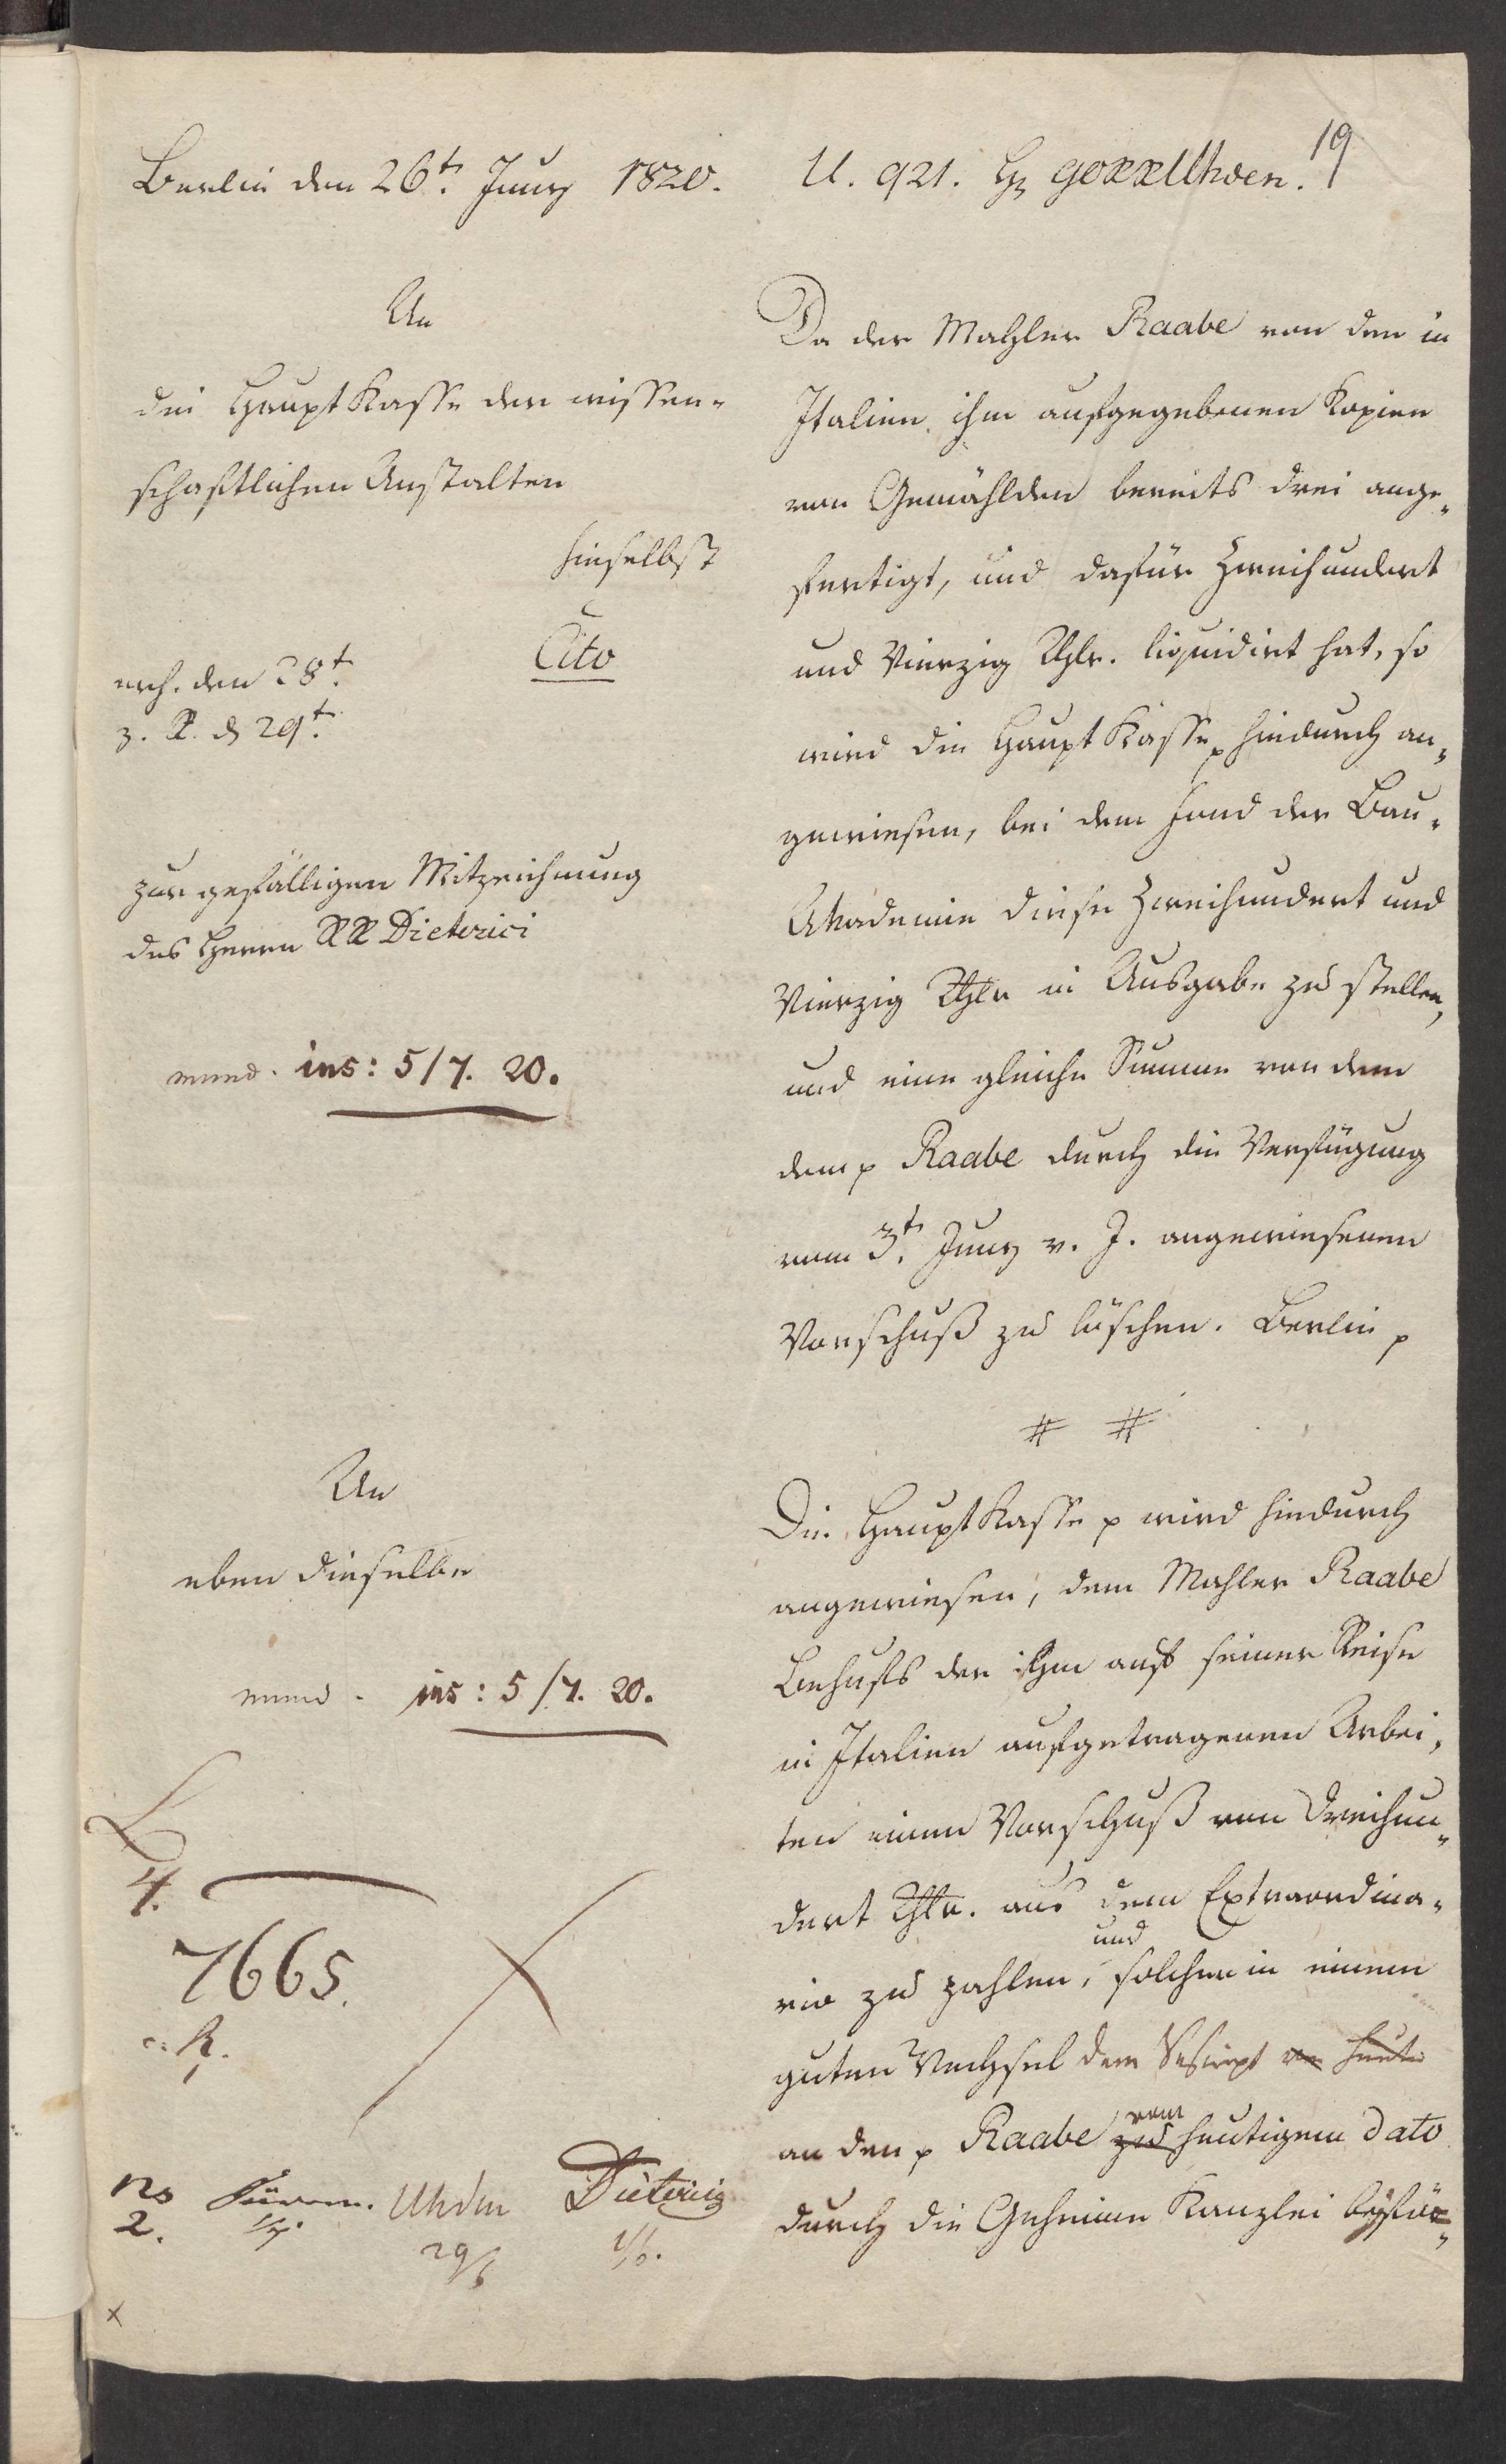 19
Berlin den 26t. Juny 1820.
U. 921.
An
die HauptKasse der wissen-
schaftlichen Anstalten
hieselbst
Cito
den 28t.
z. R. d 29t.
zur gefälligen Mitzeichnung
des Herrn RR Dieterici
mund. ins: 5/7. 20.
Da der Mahler Raabe von den in
Italien ihm aufgegebenen Kopien
von Gemählden bereits drei ange-
fertigt, und dafür Zweihundert
und Vierzig Thlr. liquidirt hat, so
wird die HauptKasse p hiedurch an-
gewiesen, bei dem Fond der Bau-
Akademie diese Zweihundert und
Vierzig Thlr in Ausgabe zu stellen,
und eine gleiche Summe von dem
dem p Raabe durch die Verfügung
vom 3t. Juny v. J. angewiesenen
Vorschuß zu löschen. Berlin p
# #
An
eben dieselbe
mund. ins: 5/7. 20.
Die HauptKasse p wird hiedurch
angewiesen, dem Mahler Raabe
Behufs der ihm auf seiner Reise
in Italien aufgetragenen Arbei-
ten einen Vorschuß von Dreihun-
dert Thlr. aus dem Extraordina-
rio zu zahlen, und solchen in einem
guten Wechsel dem Rescript heute
an den p Raabe zu vom heutigem dato
durch die Geheime Kanzlei
4.
7665.
2.
Uhden
29/6
Dieterici
1/6.
x